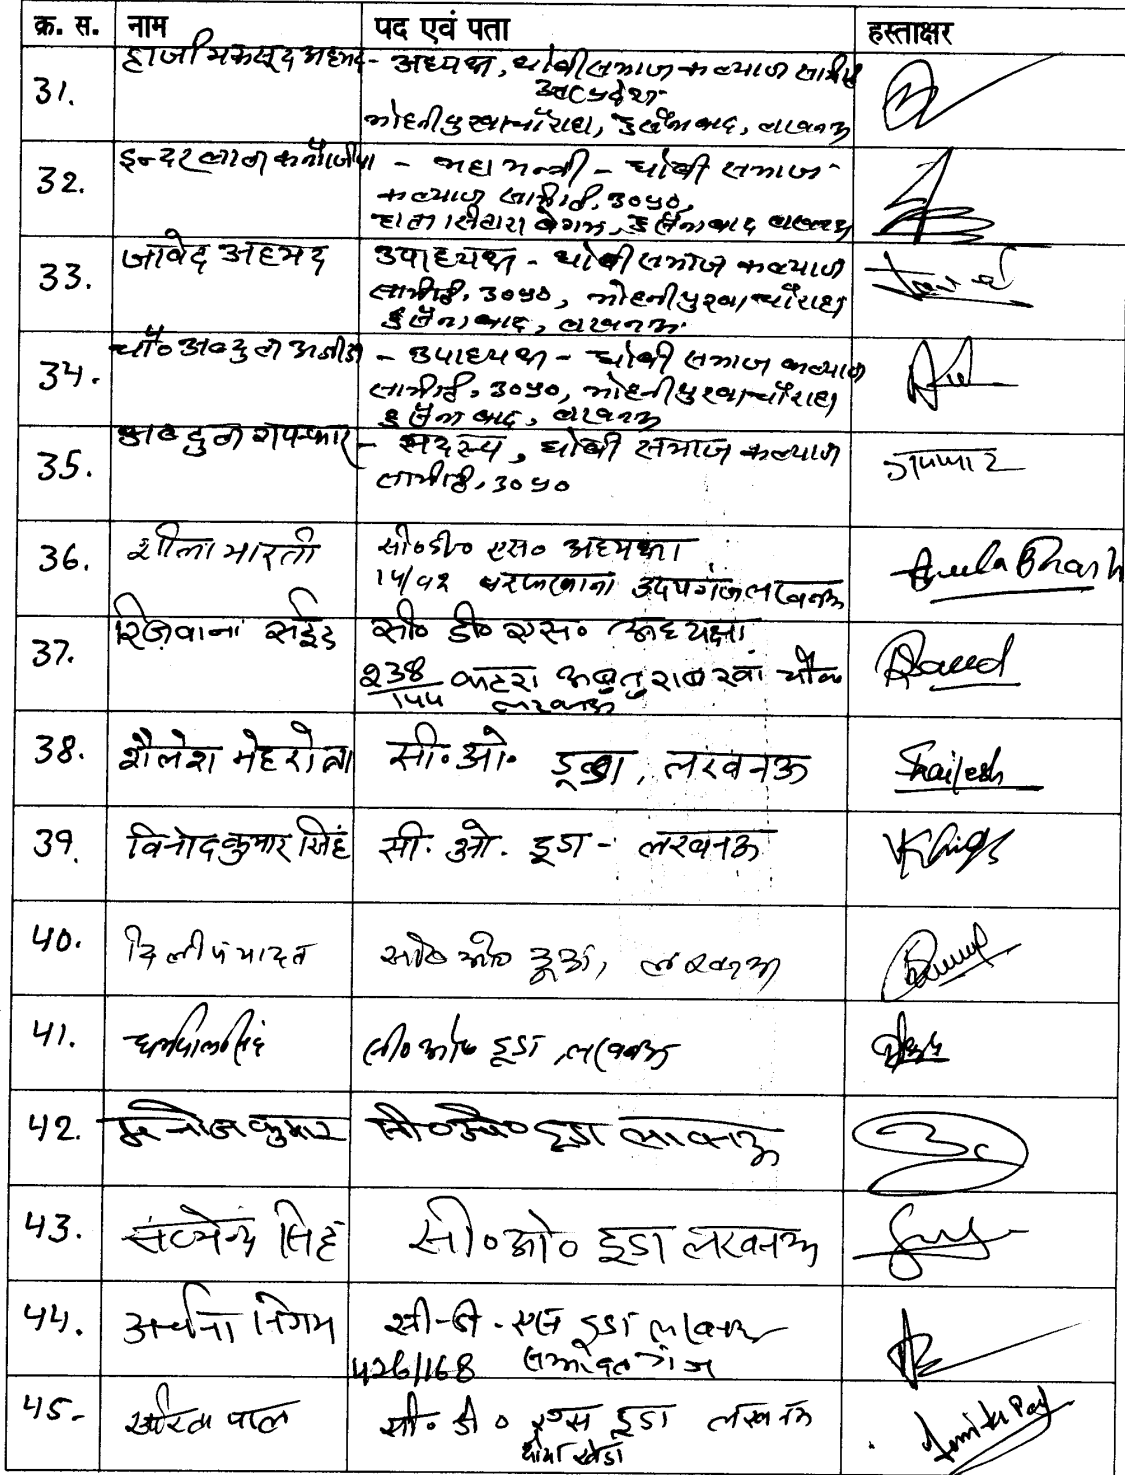 क्र. स. नाम पद एवं पता हस्ताक्षर
31. हाजी मकसूद अहमद - अध्यक्ष, धोबी समाज कल्याण समिति
उत्तर प्रदेश
मोहनीपुरवा चौराहा, हुसैनाबाद, लखनऊ
32. इन्दर लाल कनौजिया - महामन्त्री - धोबी समाज
कल्याण समिति, उ०प्र०,
हाता सितारा बेगम, हुसैनाबाद लखनऊ
33. जावेद अहमद उपाध्यक्ष - धोबी समाज कल्याण
समिति, उ०प्र०, मोहनीपुरवा चौराहा
हुसैनाबाद, लखनऊ
34. चौ० अब्दुल अजीज - उपाध्यक्ष - धोबी समाज कल्याण
समिति, उ०प्र०, मोहनीपुरवा चौराहा
हुसैनाबाद, लखनऊ
35. अब्दुल गफ्फार - सदस्य, धोबी समाज कल्याण गफ्फार
समिति, उ०प्र०
36. शीला भारती सी०डी० एस० अध्यक्षा Sheela Bharti
लखनऊ
37. रिज़वाना सईद सी० डी० एस० अध्यक्षा RSaeed
238/144 कटरा अबुतुराब खां चौक
लखनऊ
38. शैलेश मेहरोत्रा सी.ओ. डूडा, लखनऊ Shailesh
39. विनोद कुमार सिंह सी. ओ. डूडा - लखनऊ VKSingh
40. दिलीप यादव सी० ओ० डूडा, लखनऊ
41. धर्मपाल सिंह सी० ओ० डूडा, लखनऊ
42. मनोज कुमार सी०ओ० डूडा लखनऊ
43. सत्येन्द्र सिंह सी०ओ० डूडा लखनऊ
44. अर्चना निगम सी-डी-एस डूडा लखनऊ
426/168
45. पाल सी० डी० एस डूडा लखनऊ